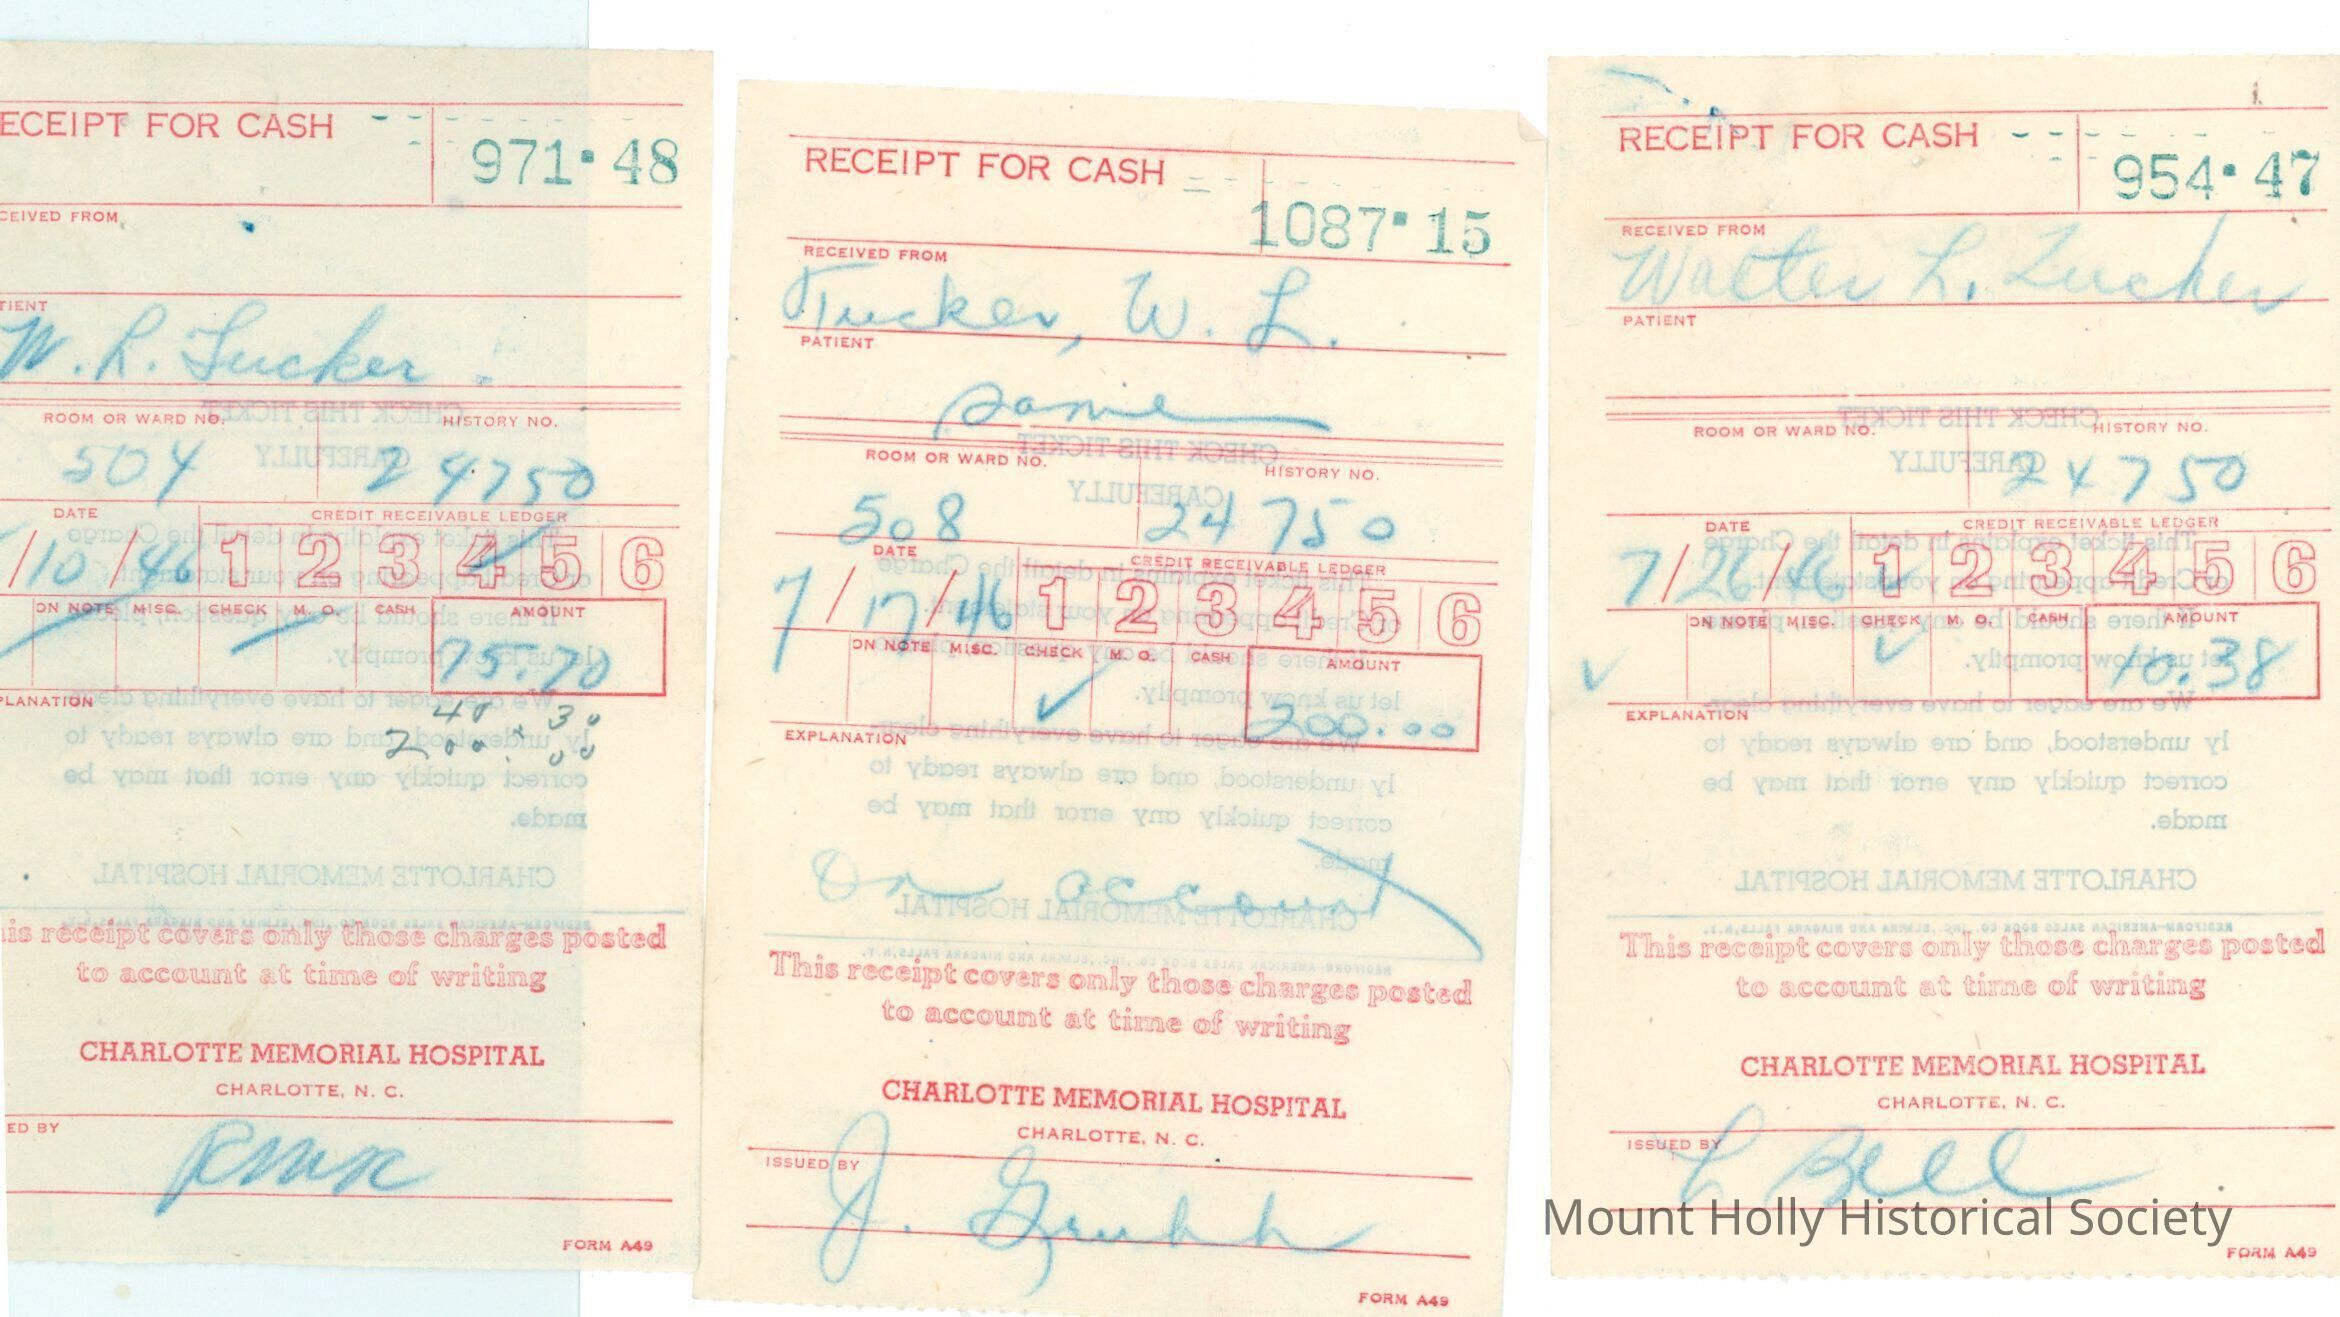 ECEIPT FOR CASH
971·48
CEIVED FROM
TIENT
W. L. Tucker
ROOM OR WARD NO.
HISTORY NO.
504
24750
DATE
CREDIT RECEIVABLE LEDGER
/10/46
1 2 3 4 5 6
ON NOTE MISC. CHECK M. O. CASH AMOUNT
75.70
PLANATION
200.00
is receipt covers only those charges posted
to account at time of writing
CHARLOTTE MEMORIAL HOSPITAL
CHARLOTTE, N. C.
ED BY
FORM A49
RECEIPT FOR CASH
1087·15
RECEIVED FROM
Tucker, W. L.
PATIENT
same
ROOM OR WARD NO.
HISTORY NO.
508
24750
DATE
CREDIT RECEIVABLE LEDGER
7/17/46
1 2 3 4 5 6
ON NOTE MISC. CHECK M. O. CASH AMOUNT
200.00
EXPLANATION
On account
This receipt covers only those charges posted
to account at time of writing
CHARLOTTE MEMORIAL HOSPITAL
CHARLOTTE, N. C.
ISSUED BY
J. Grubb
FORM A49
RECEIPT FOR CASH
954·47
RECEIVED FROM
Walter L. Tucker
PATIENT
ROOM OR WARD NO.
HISTORY NO.
24750
DATE
CREDIT RECEIVABLE LEDGER
7/26/46
1 2 3 4 5 6
ON NOTE MISC. CHECK M. O. CASH AMOUNT
10.38
EXPLANATION
This receipt covers only those charges posted
to account at time of writing
CHARLOTTE MEMORIAL HOSPITAL
CHARLOTTE, N. C.
ISSUED BY
L Bell
Mount Holly Historical Society
FORM A49